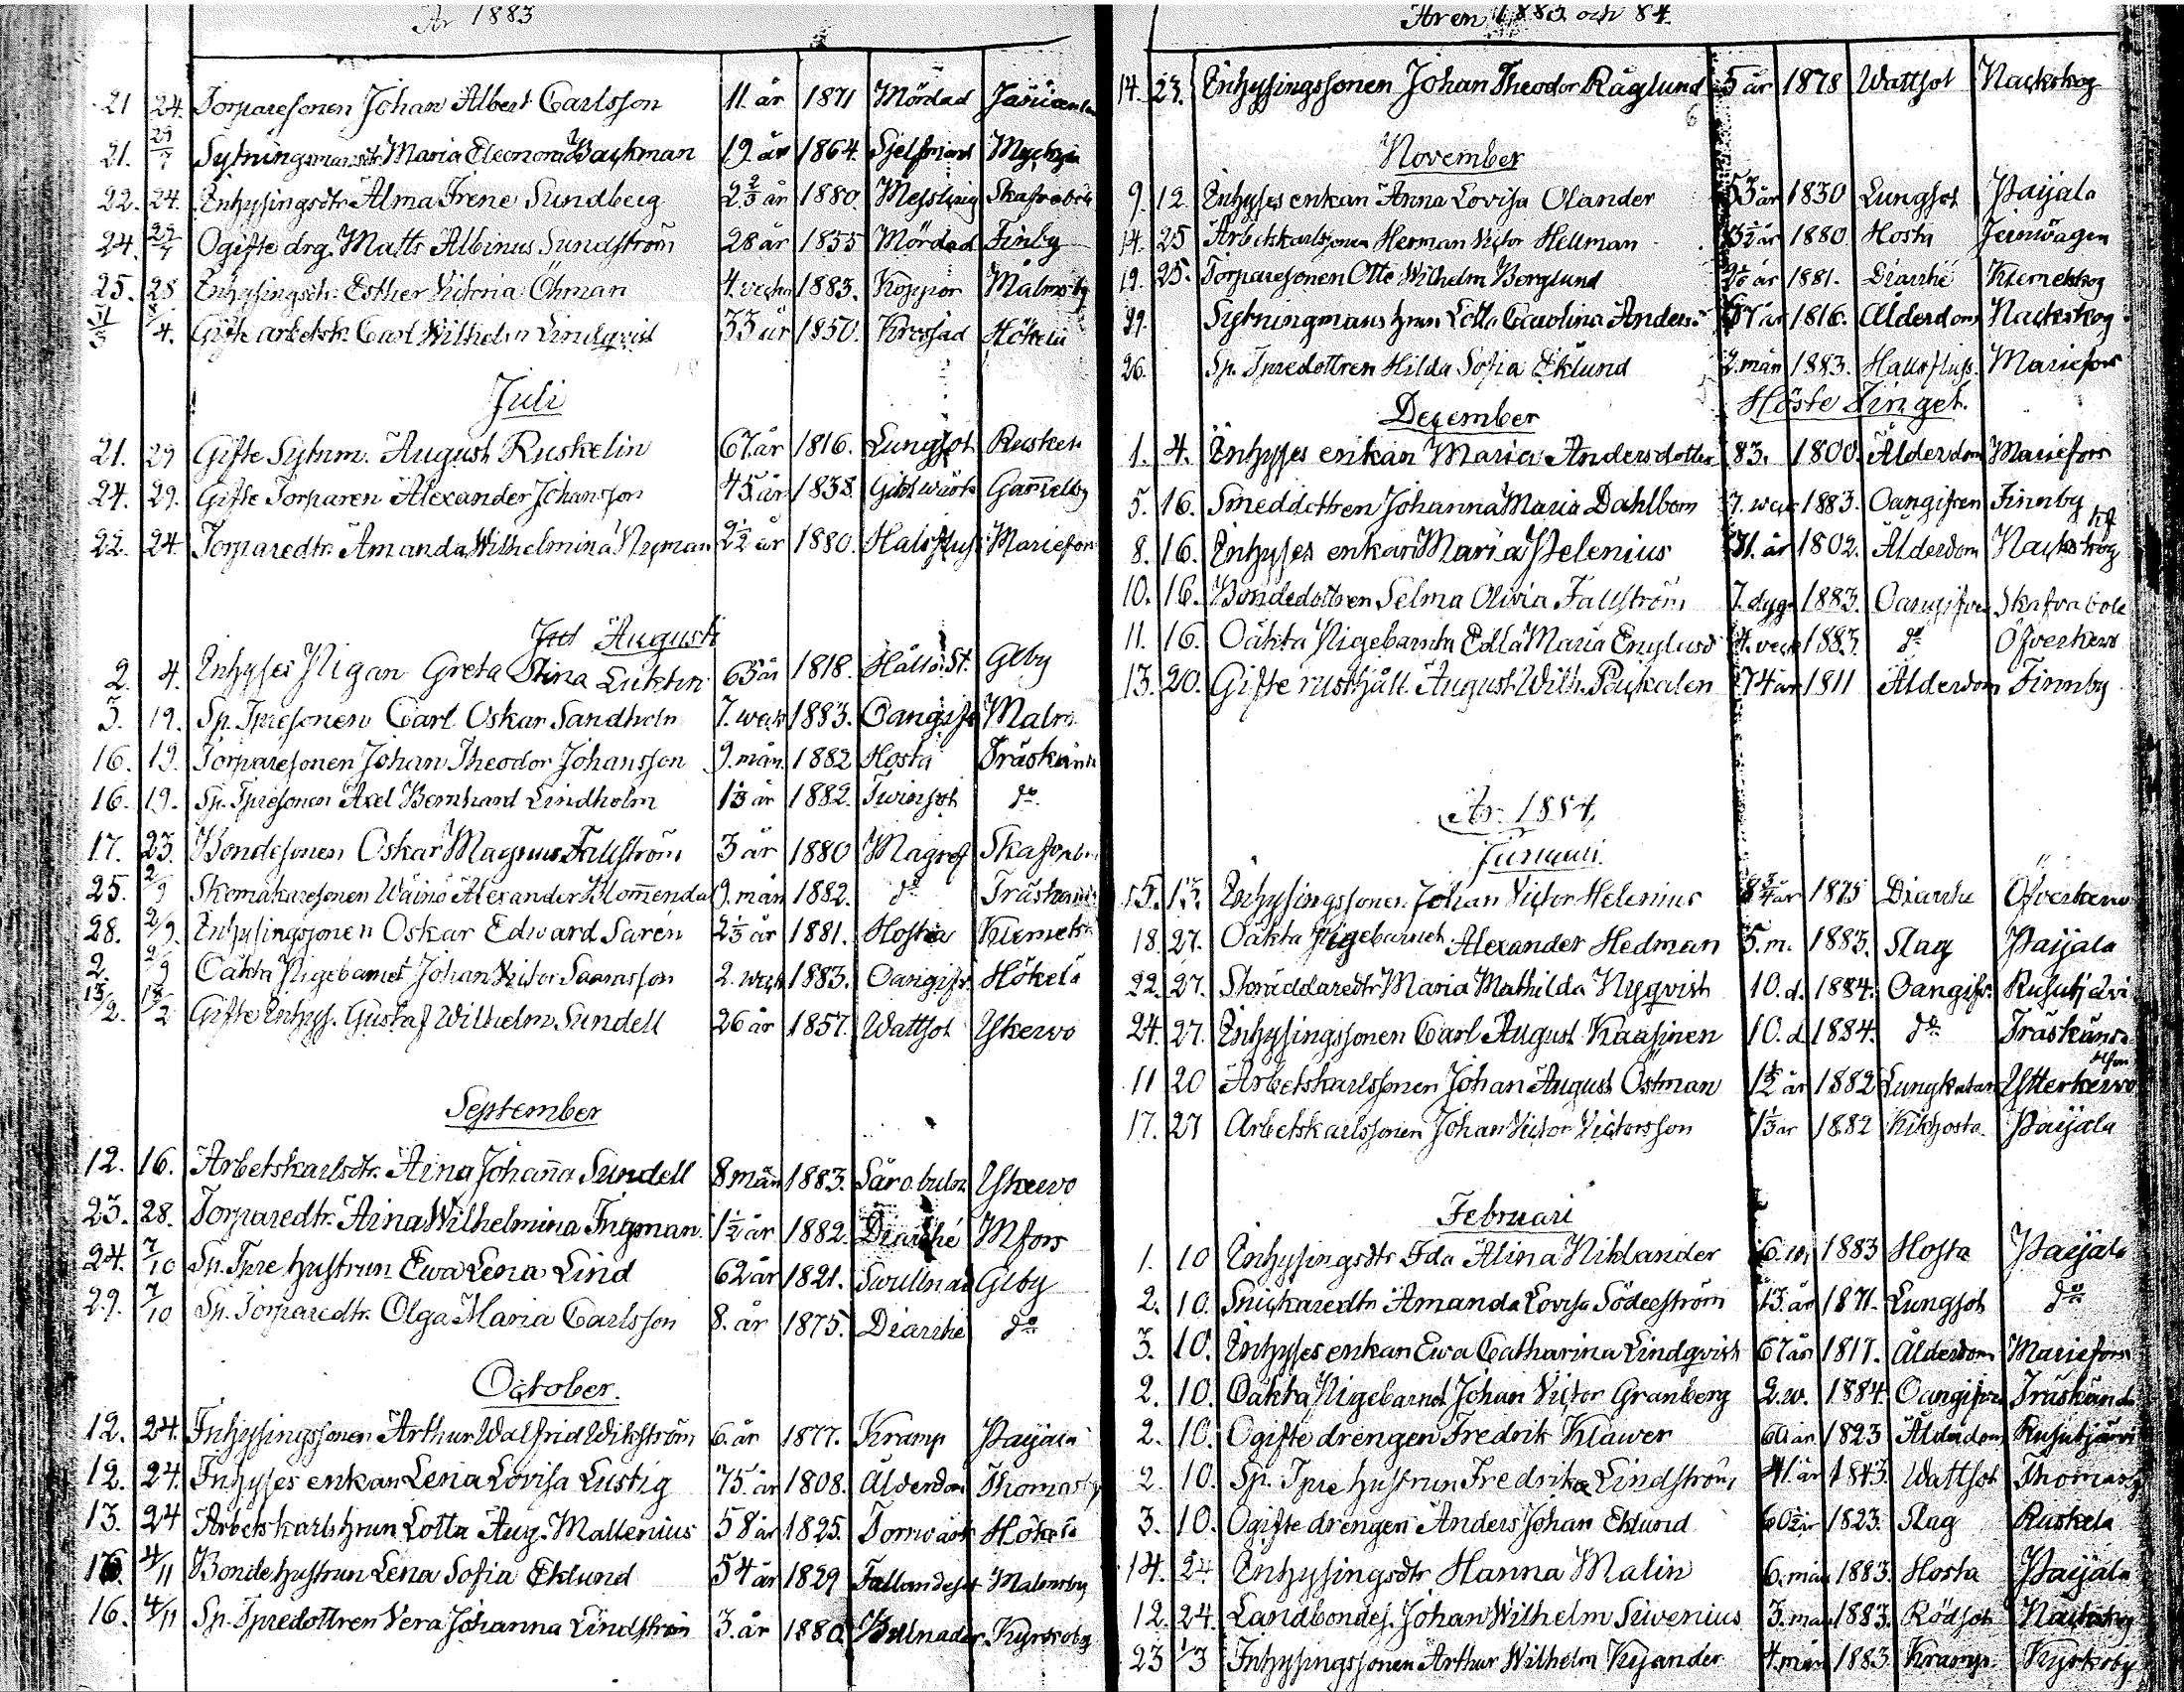 År 1883
21 24. Torparesonen Johan Albert Carlsson 11. år 1871 Mördad
21. 29/7 Sytningsmansdtr Maria Eleonora Backman 19. år 1864.
22. 24. Inhysingsdtr Alma Irene Sundberg 2 2/3 år 1880. Messling Skafvaböle
24. 29/7 Ogifte drg. Matts Albinus Sundström 28 år 1855 Mördad Finby
25. 28 Inhysingsdtr Esther Victoria Öhman 4. veckor 1883. Koppor Malmsby
4. Gifte arbetsk. Carl Wilhelm Lindqvist 33 år 1850. Krossad Hökelä
Juli
21. 29 Gifte Sytnm. August Ruskelin 67. år 1816. Lungsot Ruskela
24. 29. Gifte Torparen Alexander Johansson 45. år 1838. Giktvärk Gam̄elby
22. 24. Torparedtr. Amanda Wilhelmina Nyman 2 1/2 år 1880. Halsfluss Mariefors
Jul Augusti
2. 4. Inhyses Pigan Greta Stina Luktin 65 år 1818. Håll o. St. Glby
3. 19. Sp. Tpresonen Carl Oskar Sandholm 7. veck 1883. Oangifv Malm
16. 19. Torparesonen Johan Theodor Johansson 9. mån. 1882 Hosta Träskända
16. 19. Sp. Tpresonen Axel Bernhard Lindholm 1 1/3 år 1882. Tvinsot do
17. 23. Bondesonen Oskar Magnus Fallström 3 år 1880 Magref Skafvaböle
25. 2/9 Skomakaresonen Wäinö Alexander Blom̄endal 9. mån 1882. do Träskända
28. 2/9. Inhysingssonen Oskar Edward Sarén 2 1/3 år 1881. Hosta Klemets
2. 2/9 Oäkta Pigebarnet Johan Victor Saxmasson 2. veck 1883. Oangifv. Hökelä
13/2. Gifte Inhys. Gustaf Wilhelm Sundell 26 år 1857. Wattsot Ykervo
September
12. 16. Arbetskarlsdtr. Aina Johan̄a Sundell 8 mån 1883. Sår o. buln. Ykervo
23. 28. Torparedtr. Aina Wilhelmina Ingman 1 1/2 år 1882. Diarrhé Mfors
24. 7/10 Sp. Tpre hustrun Ewa Lena Lind 62 år 1821. Svullnad Glby
29. 7/10 Sp. Torparedtr. Olga Maria Carlsson 8. år 1875. Diarrhé do
October.
12. 24. Inhysingssonen Arthur Walfrid Wikström 6. år 1877. Kramp Paijala
12. 24. Inhyses enkan Lena Lovisa Lustig 75. år 1808. Ålderdom Thomasby
13. 24 Arbetskarls hrun Lotta Aug. Mallenius 58 år 1825. Tornvärk Hökelä
16. 4/11 Bondehustrun Lena Sofia Eklund 54 år 1829 Fallandesot Malmsby
16. 4/11 Sp. Tpredottren Vera Johanna Lindström 3. år 1880. Bullnader Kyrkoby
Åren 1883 och 84.
14. 23. Inhysingssonen Johan Theodor Råglund 5 år 1878 Wattsot Nackskog
November
9. 12 Inhyses enkan Anna Lovisa Olander 53 år 1830 Lungsot Paijala
14. 25 Arbetskarlssonen Herman Victor Hellman 3 1/2 år 1880. Hosta Jernvägen
19. 25. Torparesonen Otto Wilhelm Borglund 1881. Diarrhé Klemetskog
29. Sytningmans hrun Lotta Carolina Anders 67 år 1816. Ålderdom Nackskog
26. Sp. Tpredottren Hilda Sofia Eklund 2. mån 1883. Halsfluss. Mariefors
December Höste Tinget.
1. 4. Inhyses enkan Maria Andersdotter 83. 1800. Ålderdom Mariefors
5. 16. Smeddottren Johanna Maria Dahlbom 7. veck 1883. Oangifven Finnby
8. 16. Inhyses enkan Maria Helenius 81. år 1802. Ålderdom Nackskog
10. 16. Bondedottren Selma Olivia Fallström 7. dygn 1883. Oangifven Skafvaböle
11. 16. Oäkta Pigebarnet Edla Maria Englund 4. veck 1883. do Öfverkervo
13. 20. Gifte rusthåll. August Wilh. Päiskalen 74 år 1811 Ålderdom Finnby
År 1884.
Januari.
15. 13. Inhysingssonen Johan Victor Helenius 8 3/4 år 1875 Diarrhe Öfverkervo
18. 27. Oäkta Pigebarnet Alexander Hedman 5. m. 1883. Slag Paijala
22. 27. Skräddaredtr Maria Mathilda Nyqvist 10. d. 1884. Oangifv. Rusutjärvi
24. 27. Inhysingssonen Carl August Kaasinen 10. d 1884. do Träskända
11 20 Arbetskarlssonen Johan August Östman 1 1/2 år 1882 Lungkatar Ytterkervo
17. 27 Arbetskarlssonen Johan Victor Victorsson 1 1/3 år 1882 Kikhosta. Paijala
Februari
1. 10 Inhysingsdtr Ida Alina Niklander 6. m 1883 Hosta Paijala
2. 10. Snickaredtr Amanda Lovisa Söderström 13. år 1871. Lungsot do
3. 10. Inhyses enkan Ewa Catharina Lindqvist 67 år 1817. Ålderdom Mariefors
2. 10. Oäkta Pigebarnet Johan Victor Granberg 2. v. 1884. Oangifven Träskända
2. 10. Ogifte drengen Fredrik Klawer 60 år 1823 Ålderdom Rusutjärvi
2 10. Sp. Tpre hustrun Fredrika Lindström 41. år 1843. Wattsot Thomasby
3. 10. Ogifte drengen Anders Johan Eklund 60 1/2 år 1823. Slag Ruskela
14. 24 Inhysingsdtr Hanna Malin 6. mån 1883. Hosta Paijala
12. 24. Landbondes. Johan Wilhelm Siwenius 3. mån 1883. Rödsot Nackskog
23 1/3 Inhysingssonen Arthur Wilhelm Kyander 4. mån 1883 Kramp Kyrkoby